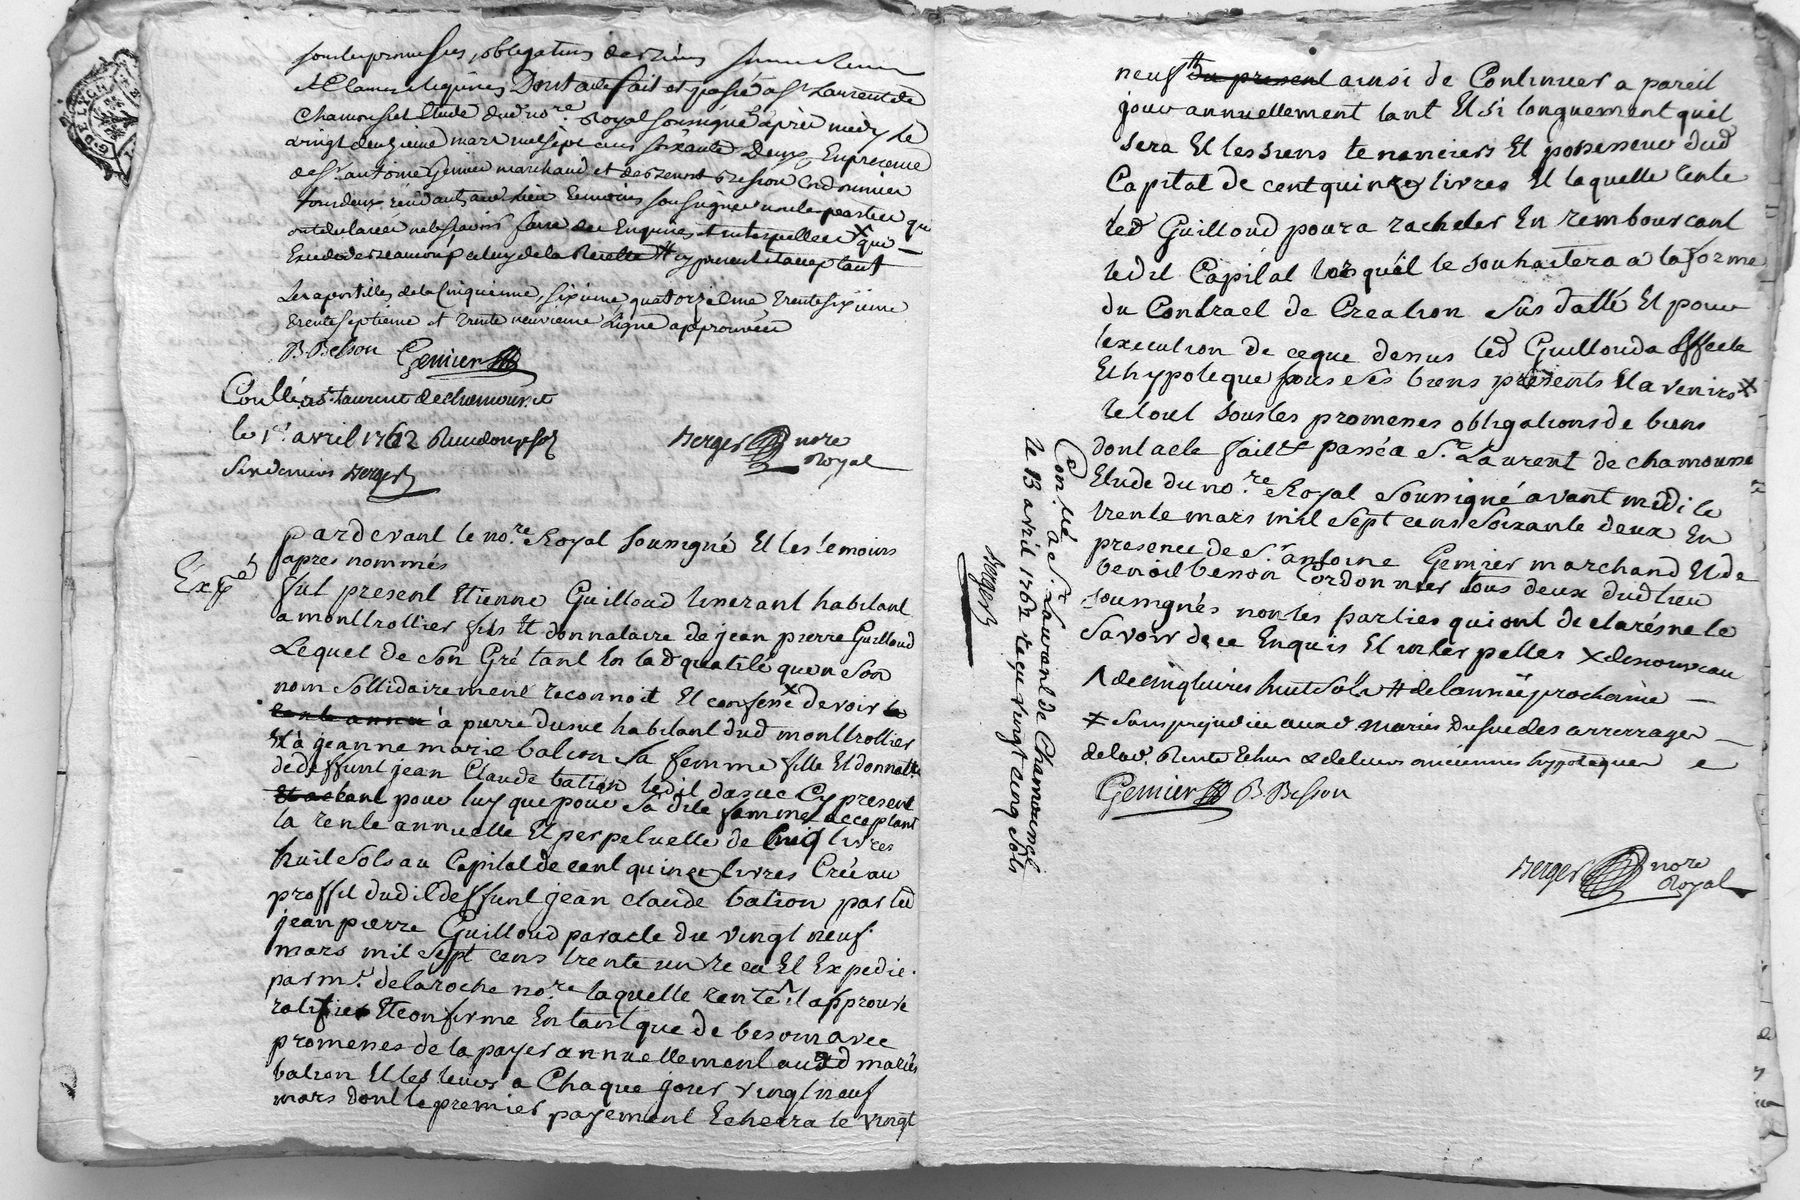 sous les promesses, obligations des biens
et Clauses requises Dont acte fait et passé a St Laurent de
Chamousset Etude dud no.re Royal soussigné après midy le
vingt deuxieme mars mil sept cens soixante Deux En presence
de Sr antoine Gemier marchand et de benoist Besson Cordonnier
tous deux dud lieu temoins soussignés non les parties qui
ont declarées ne le scavoir faire de ce Enquises et interpellées × qui
de la Recette # cy present et acceptant
Les apostilles de la Cinquieme, sixieme quatorzieme trente sixieme
trente septieme et trente neuvieme Ligne approuvées
B Besson Gemier
Conllé a St Laurent de chamousset
le 1er avril 1762 Reçu douze sols
Six deniers Berger
Berger nore
Royal
pardevant le no.re Royal soussigné Et les temoins
apres nommés
Exp.é
fut present Etienne Guilloud tisserant habitant
a montrottier fils Et donnataire de jean pierre Guilloud
Lequel de son Gré tant En lad qualité quen son
nom Sollidairement reconnoit Et confesse × devoir la
rente annu à pierre dusuc habitant dud montrottier
Et à jeanne marie balion sa femme fille Et donnat.re
de deffunt jean Claude balion ledit dusuc Cy present
Et actant pour luy que pour sa dite femme acceptant
la rente annuelle Et perpetuelle de Cinq livres
huit sols au Capital de cent quinze livres Créé au
proffit dudit deffunt jean claude balion par led
jean pierre Guilloud par acte du vingt neuf
mars mil sept cens trente un recu Et Expedié
par m.e delaroche no.re laquelle rente Λ il approuve
ratiffie Et confirme En tant que de besoin avec
promesses de la payer annuellement aux d mariés
balion Et les leurs a Chaque jour vingt neuf
mars dont le premier payement Echerra le vingt
neuf # du present ainsi de Continuer a pareil
jour annuellement tant Et si longuement quil
sera Et les siens tenanciers Et possesseur dud
Capital de cent quinze livres Et laquelle rente
led Guilloud poura racheter En remboursant
ledit Capital lors quil le souhaitera a la forme
du Contract de Creation sus datté Et pour
lexecution de ce que dessus led Guilloud a affecté
Et hypotequé tous ses biens présents Et avenirs ×
le tout sous les promesses obligations de biens
dont acte fait & passé a St Laurent de chamousset
Etude du no.re Royal soussigné avant midi le
trente mars mil sept cens soixante deux En
presence de Sr antoine Gemier marchand Et de
benoit besson Cordonnier tous deux dud lieu
soussignés non les parties qui ont declarés ne le
Savoir de ce Enquis Et interpellés × de nouveau
Λ de cinq livres huit sols # de lannée prochaine
× sans prejudice auxd. mariés Dusuc des arrerrages
de lad. Rente Echus & de leurs anciennes hypoteques
Gemier B Besson
Berger nore
Royal
Conllé a St Laurent de Chamousset
le 13 avril 1762 Reçu vingt cinq sols
Berger